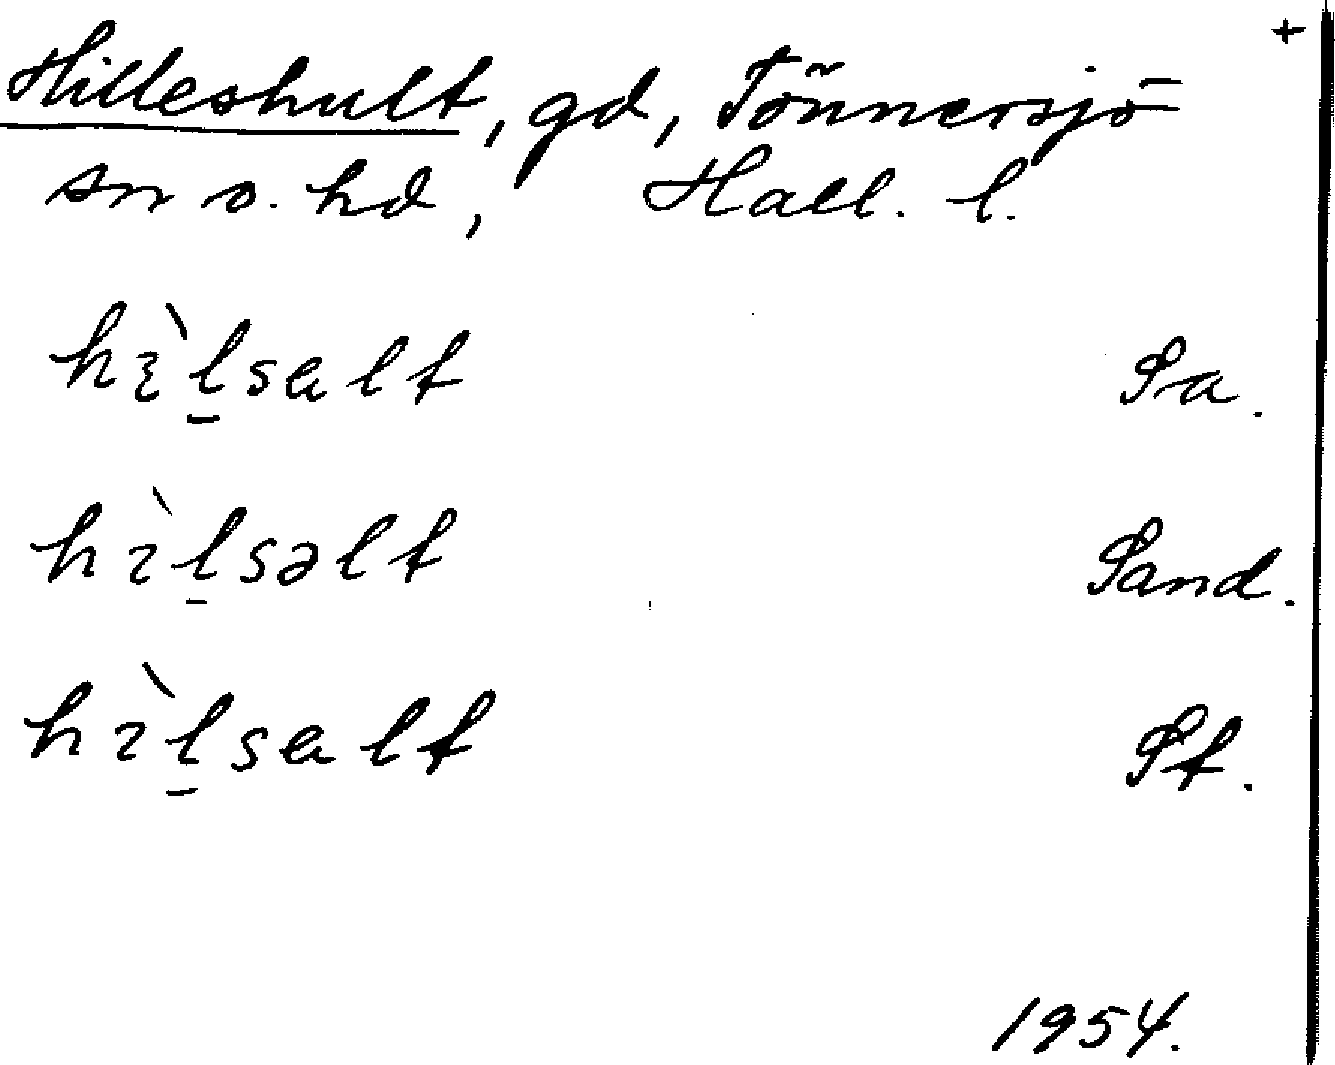 +
Hilleshult, gd, Tönnersjö
sn o. hd, Hall. l.
hɪ̀l̠salt Sa.
hɪ̀l̠səlt Sand.
hɪ̀l̠salt St.
1954.